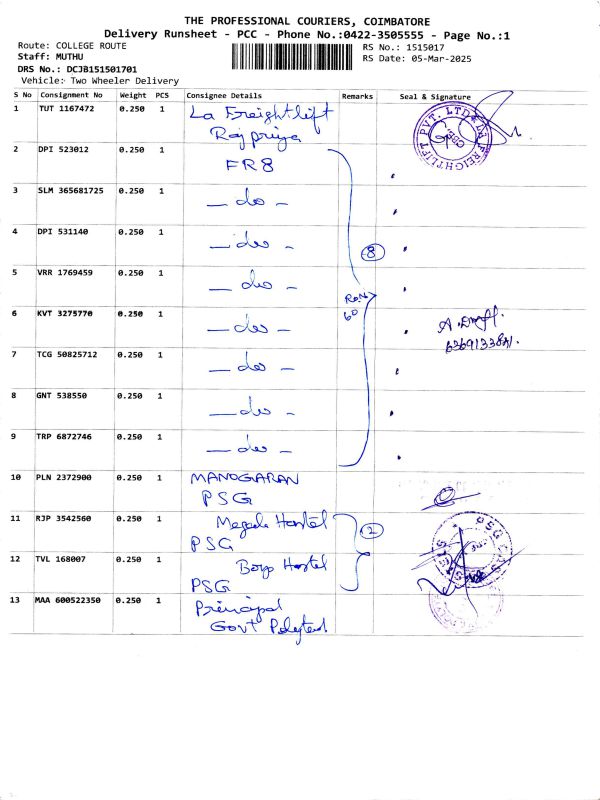 THE PROFESSIONAL COURIERS, COIMBATORE
Delivery Runsheet - PCC - Phone No.:0422-3505555 - Page No.:1
Route: COLLEGE ROUTE
Staff: MUTHU
DRS No.: DCJB151501701
Vehicle: Two Wheeler Delivery
RS No.: 1515017
RS Date: 05-Mar-2025
S No Consignment No Weight PCS Consignee Details Remarks Seal & Signature
1 TUT 1167472 0.250 1 La Freightlift
Rajpriya
2 DPI 523012 0.250 1 FR8
3 SLM 365681725 0.250 1 — do —
4 DPI 531140 0.250 1 — do —
8
5 VRR 1769459 0.250 1 — do —
6 KVT 3275770 0.250 1 — do —
60
7 TCG 50825712 0.250 1 — do —
8 GNT 538550 0.250 1 — do —
9 TRP 6872746 0.250 1 — do —
10 PLN 2372900 0.250 1 MANOGARAN
PSG
11 RJP 3542560 0.250 1 Hostel
PSG
2
12 TVL 168007 0.250 1 Boys Hostel
PSG
13 MAA 600522350 0.250 1 Principal
Govt Polytech
FREIGHTLIFT PVT. LTD
PSG CAS